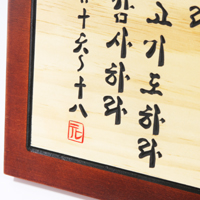 라
고기도하라
감사하라
十六~十八